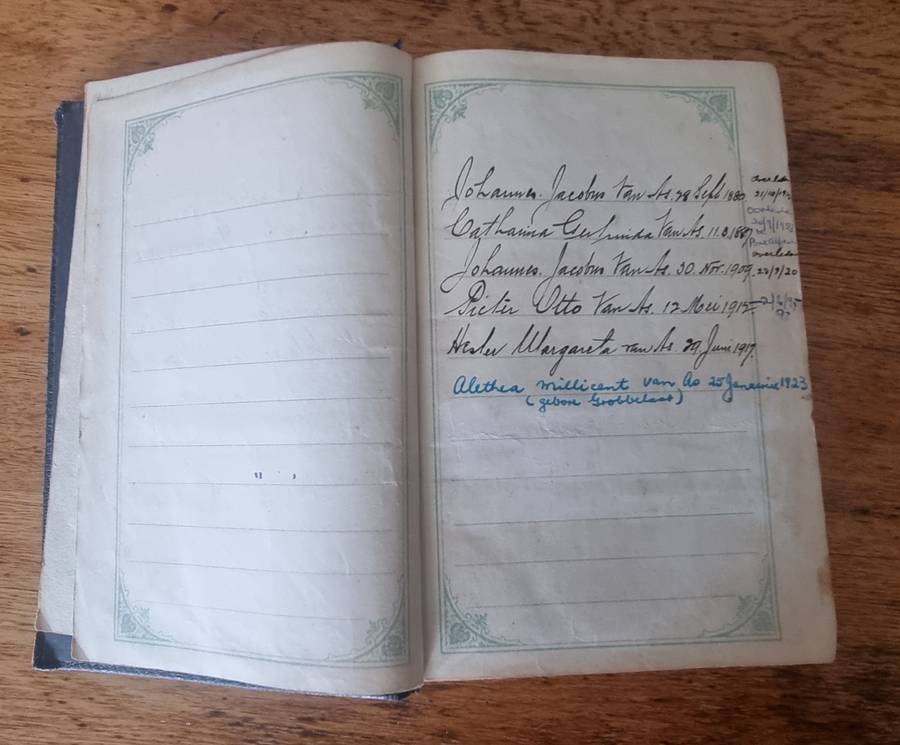 Johannes. Jacobus Van As. 28 Sept 1880 overleden
Catharina Van As. 11.3.1887
Johannes. Jacobus Van As. 30. Nov. 1909. overleden 28/9/20
Pieter Otto Van As. 12 Mei 1912
Hester Margareta van As 29 Junie 1917
Alethea Millicent van As 25 Januarie 1923
(gebore Grobbelaar)